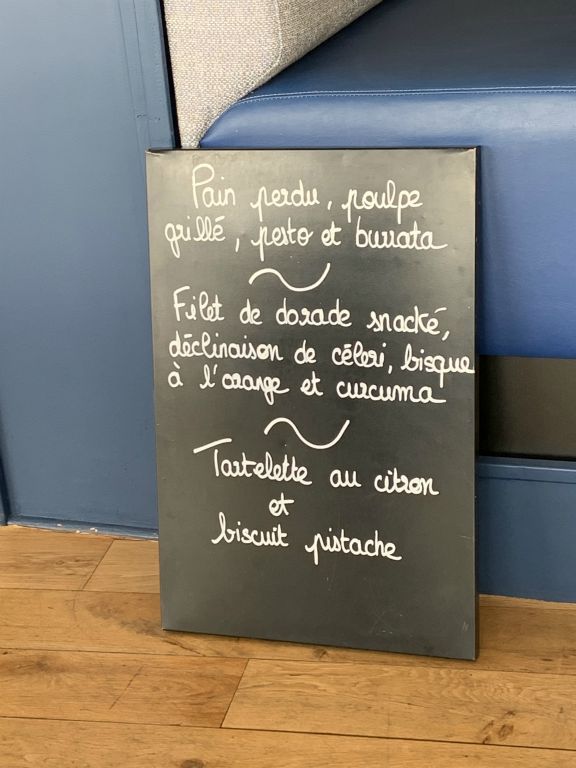 Pain perdu, poulpe
grillé, pesto et burrata
~
Filet de dorade snacké,
déclinaison de céleri, bisque
à l'orange et curcuma
~
Tartelette au citron
et
biscuit pistache